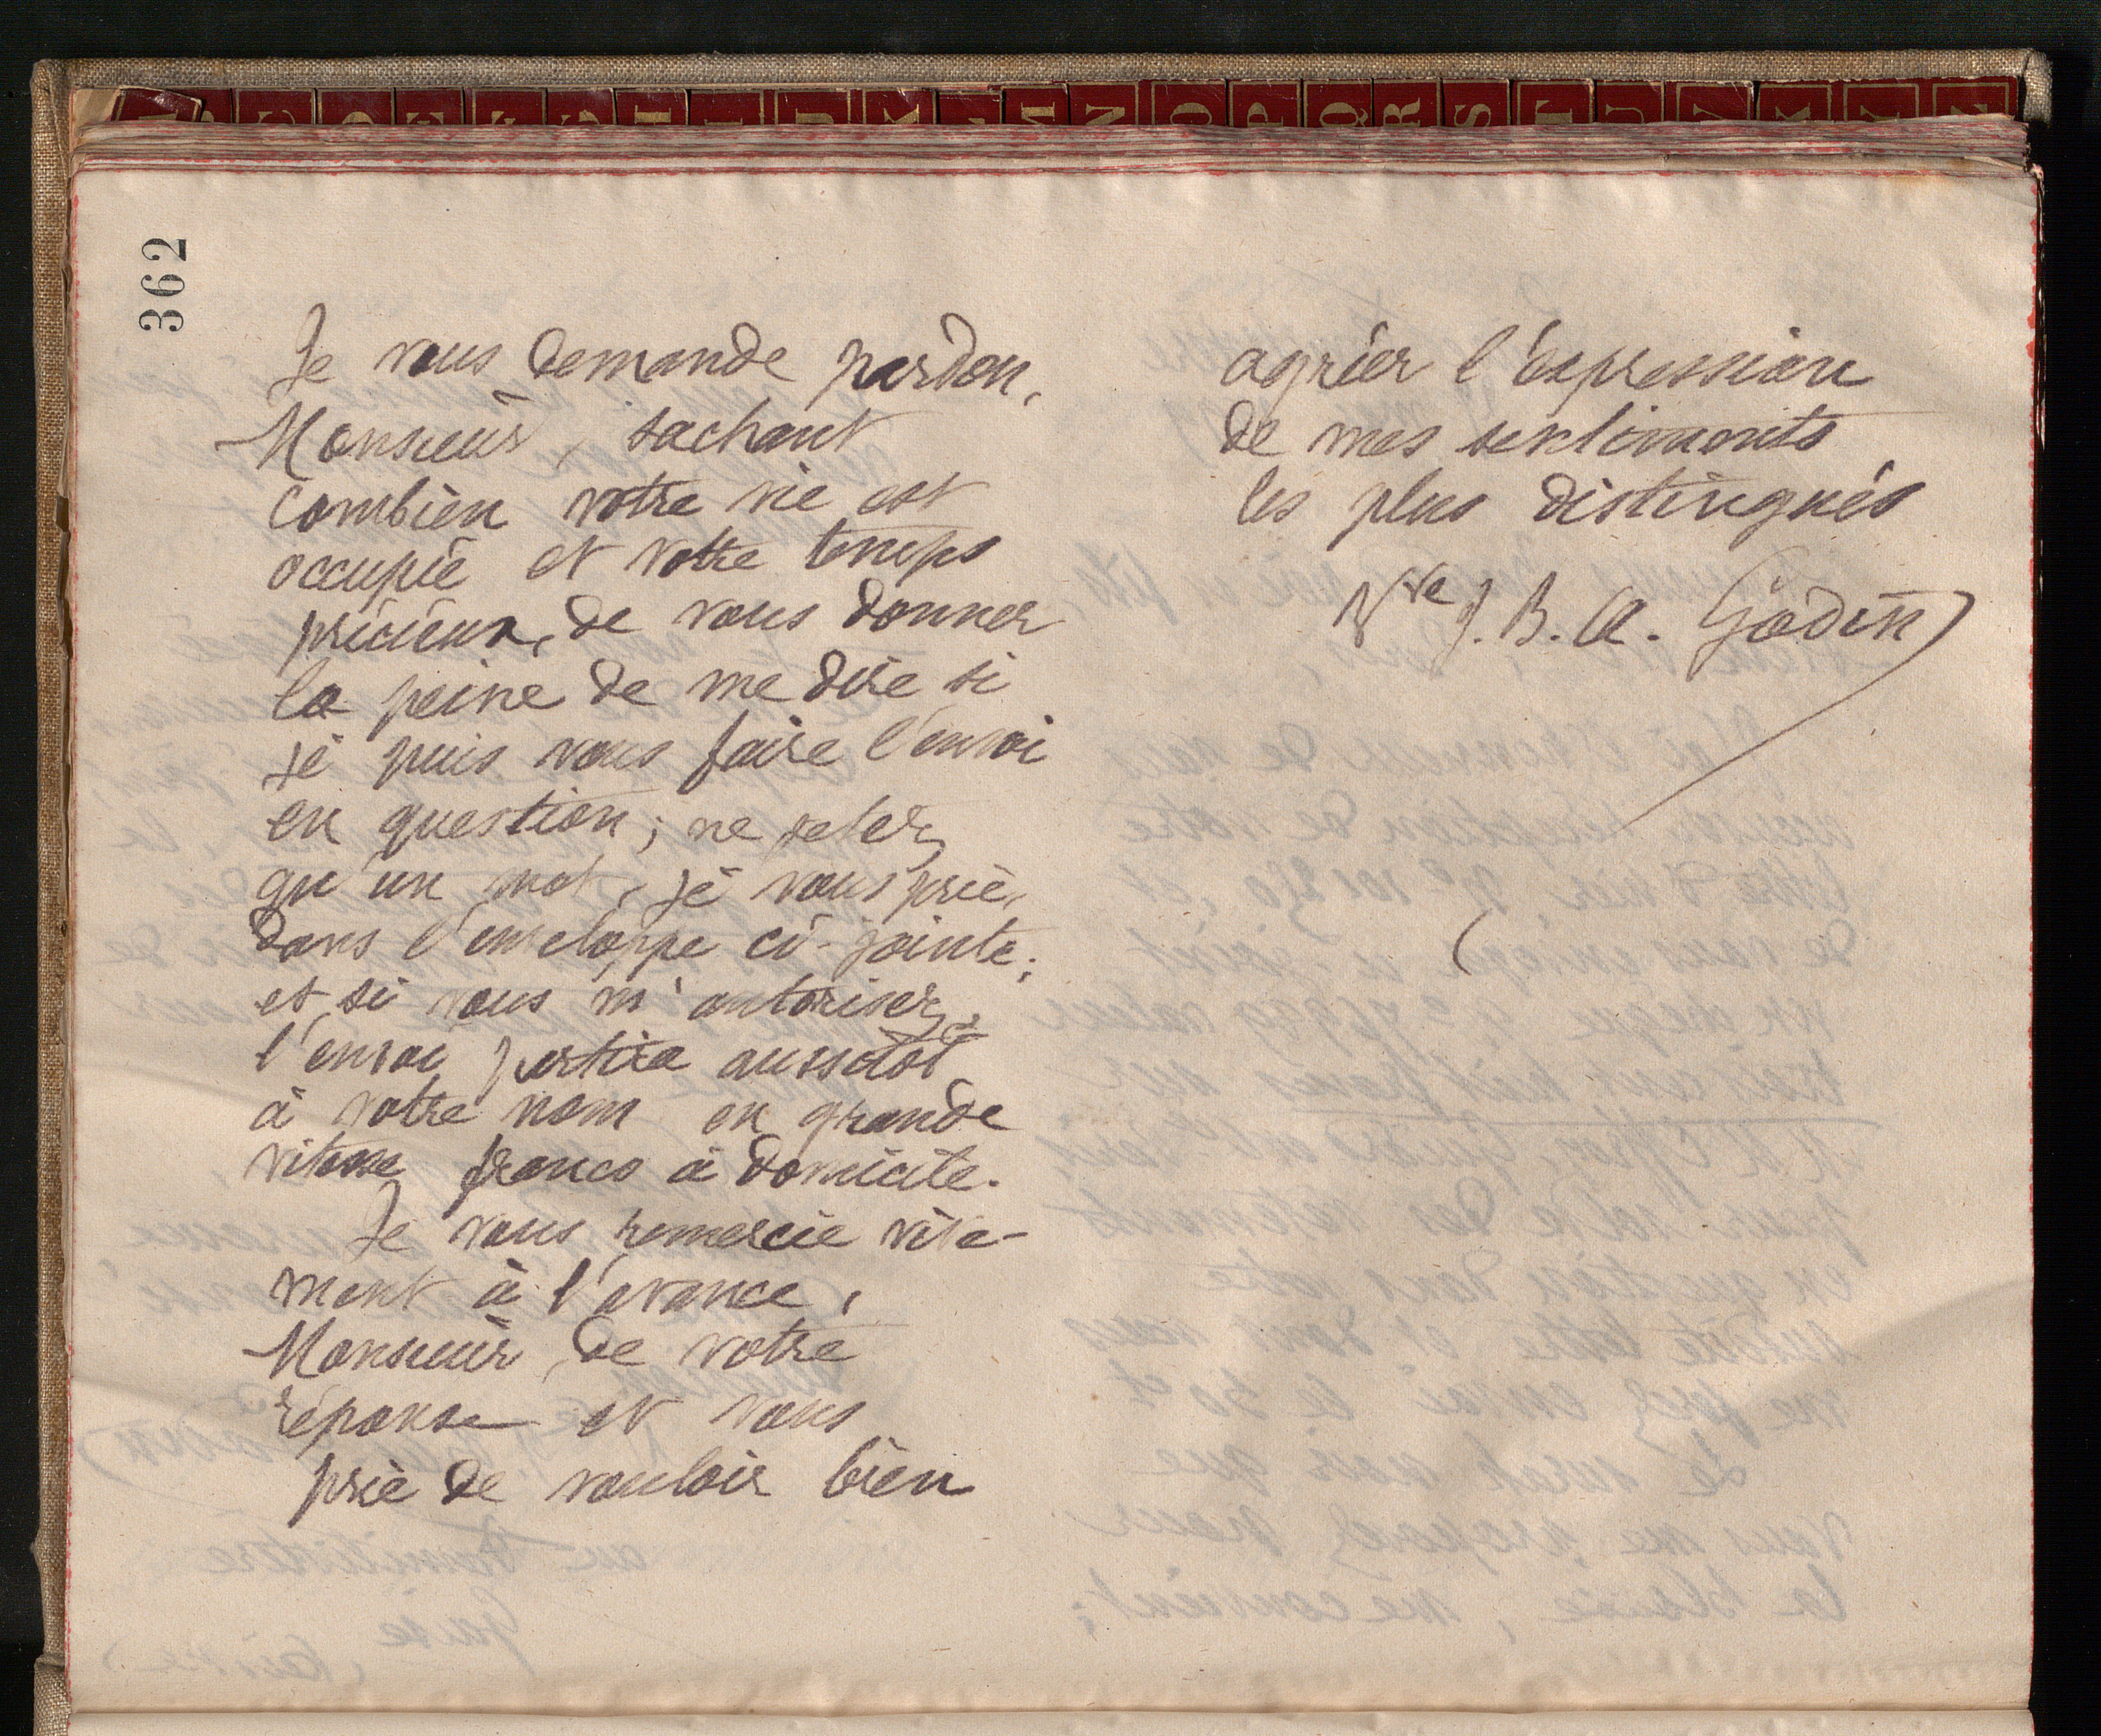 362
Je vous demande pardon,
Monsieur, sachant
combien votre vie est
occupée et votre temps
précieux, de vous donner
la peine de me dire si
je puis vous faire l'envoi
en question ; ne jetez
qu'un mot, je vous prie,
dans l'enveloppe ci-jointe ;
et si vous m'autorisez,
l'envoi partira aussitôt
à votre nom en grande
vitesse franco à domicile.
Je vous remercie vive-
ment à l'avance,
Monsieur, de votre
réponse et vous
prie de vouloir bien
agréer l'expression
de mes sentiments
les plus distingués
Vve J. B. A. Godin